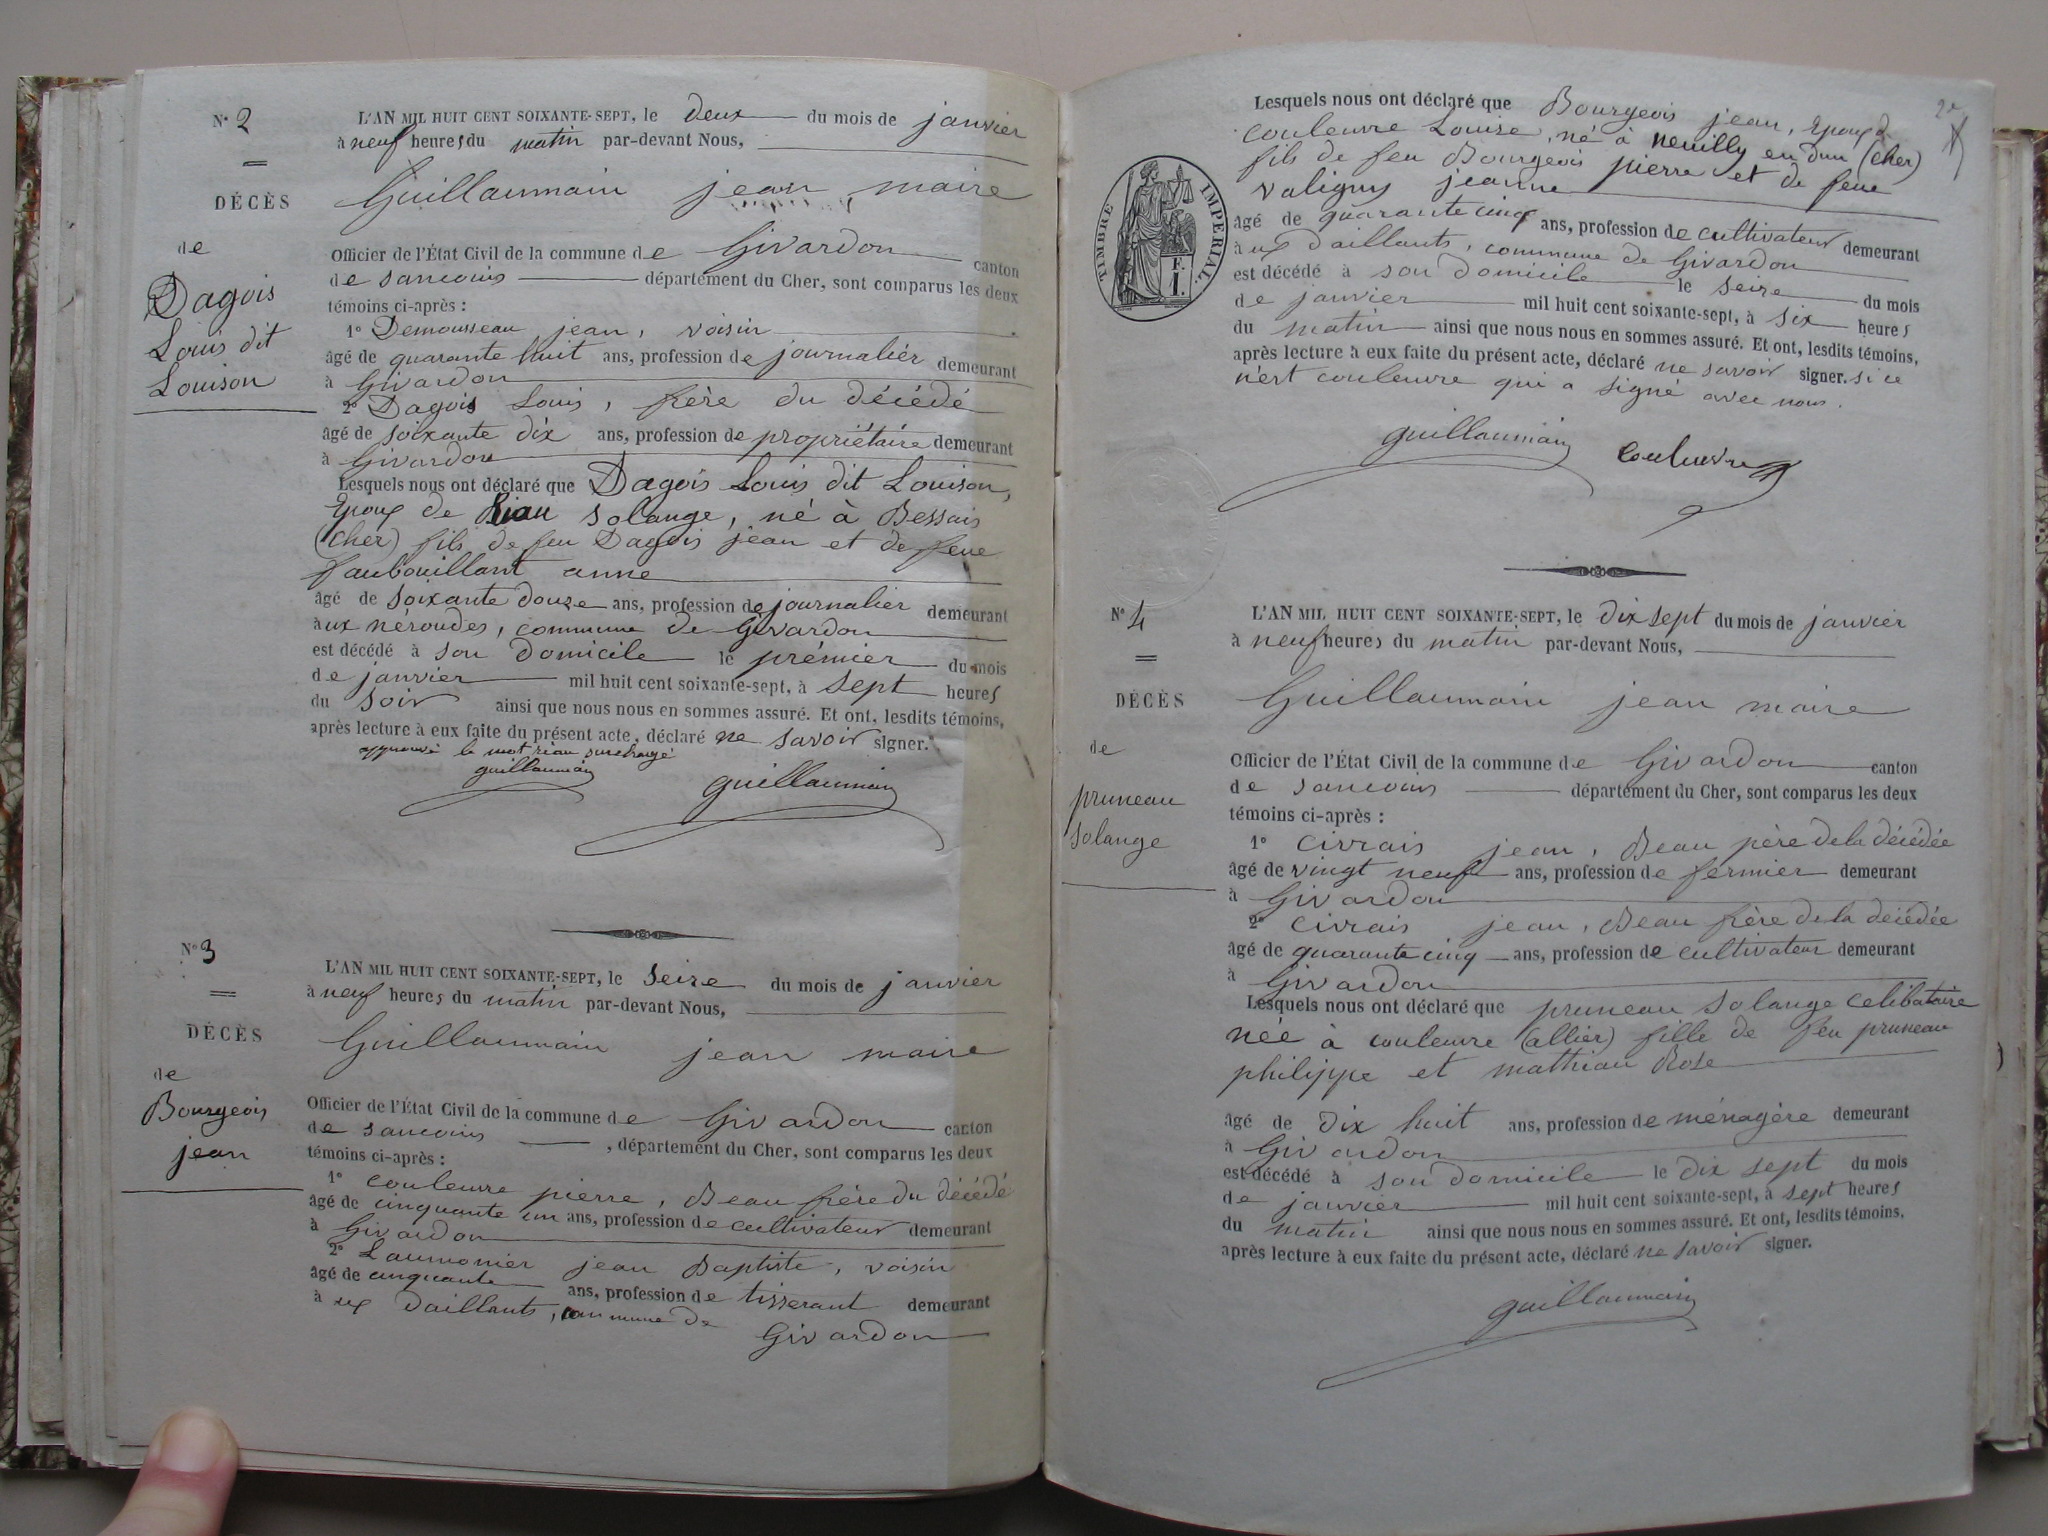 N° 2
DÉCÈS
de
Dagois
Louis dit
Louison
L'AN MIL HUIT CENT SOIXANTE-SEPT, le deux du mois de janvier
à neuf heures du matin par-devant Nous,
Guillaumain jean, maire
Officier de l'État Civil de la commune de Givardon canton
de sancoins département du Cher, sont comparus les deux
témoins ci-après :
1° Demousseau jean, voisin
âgé de quarante huit ans, profession de journaliér demeurant
à Givardon
2° Dagois Louis, frère du décédé
âgé de soixante dix ans, profession de propriétaire demeurant
à Givardon
Lesquels nous ont déclaré que Dagois Louis dit Louison,
Epoux de Riau solange, né à Bessais
(Cher) fils de feu Dagois jean et de feue
faubouillant anne
âgé de soixante douze ans, profession de journalier demeurant
aux néroudes, commune de Givardon
est décédé à son domicile le prémier du mois
de janvier mil huit cent soixante-sept, à sept heures
du soir ainsi que nous nous en sommes assuré. Et ont, lesdits témoins,
après lecture à eux faite du présent acte, déclaré ne savoir signer.
approuvé le mot riau surchargé
guillaumain
guillaumain
N° 3
DÉCÈS
de
Bourgeois
jean
L'AN MIL HUIT CENT SOIXANTE-SEPT, le seize du mois de janvier
à neuf heures du matin par-devant Nous,
Guillaumain jean maire
Officier de l'État Civil de la commune de Givardon canton
de sancoins , département du Cher, sont comparus les deux
témoins ci-après :
1° couleuvre pierre, Beau frére du décédé
âgé de cinquante un ans, profession de cultivateur demeurant
à Givardon
2° Laumonier jean Baptiste, voisin
âgé de cinquante ans, profession de tisserant demeurant
à ux daillants, commune de
Givardon
2e
Lesquels nous ont déclaré que Bourgeois jean, Epoux d
couleuvre Louise, né à neuilly en dun (cher)
fils de feu Bourgeois pierre et de feue
valigny jeanne
âgé de quarante cinq ans, profession de cultivateur demeurant
à ux daillants, commune de Givardon
est décédé à son domicile le seize du mois
de janvier mil huit cent soixante-sept, à six heures
du matin ainsi que nous nous en sommes assuré. Et ont, lesdits témoins,
après lecture à eux faite du présent acte, déclaré ne savoir signer. si ce
n'est couleuvre qui a signé avec nous.
guillaumain couleuvre
TIMBRE IMPERIAL.
F.
1.
N° 4
DÉCÈS
de
pruneau
solange
L'AN MIL HUIT CENT SOIXANTE-SEPT, le dix sept du mois de janvier
à neuf heures du matin par-devant Nous,
Guillaumain jean maire
Officier de l'État Civil de la commune de Givardon canton
de sancoins département du Cher, sont comparus les deux
témoins ci-après :
1° civrais jean, Beau père de la décédée
âgé de vingt neuf ans, profession de fermier demeurant
à Givardon
2° civrais jean, Beau frère de la décédée
âgé de quarante cinq ans, profession de cultivateur demeurant
à Givardon
Lesquels nous ont déclaré que pruneau solange celibataire
née à couleuvre (allier) fille de feu pruneau
philippe et mathiau Rose
âgé de dix huit ans, profession de ménagère demeurant
à Givardon
est décédé à son domicile le dix sept du mois
de janvier mil huit cent soixante-sept, à sept heures
du matin ainsi que nous nous en sommes assuré. Et ont, lesdits témoins,
après lecture à eux faite du présent acte, déclaré ne savoir signer.
guillaumain